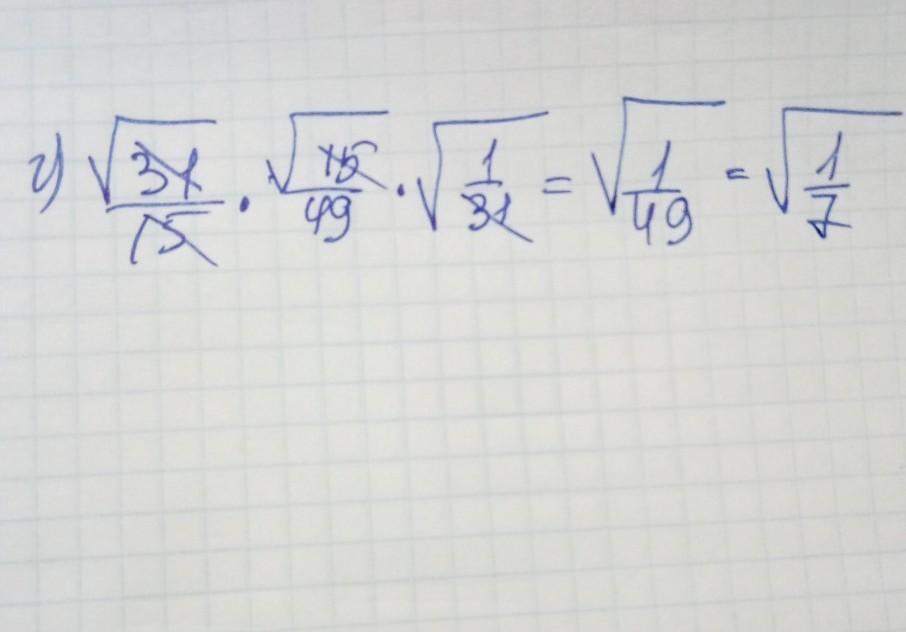 г) √31/15 · √15/49 · √1/31 = √1/49 = √1/7